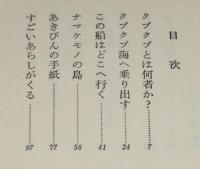 目次
クプクプとは何者か？……7
クプクプ海へ乗り出す……24
この船はどこへ行く……41
ナマケモノの島……58
あきびんの手紙……77
すごいあらしがくる……97